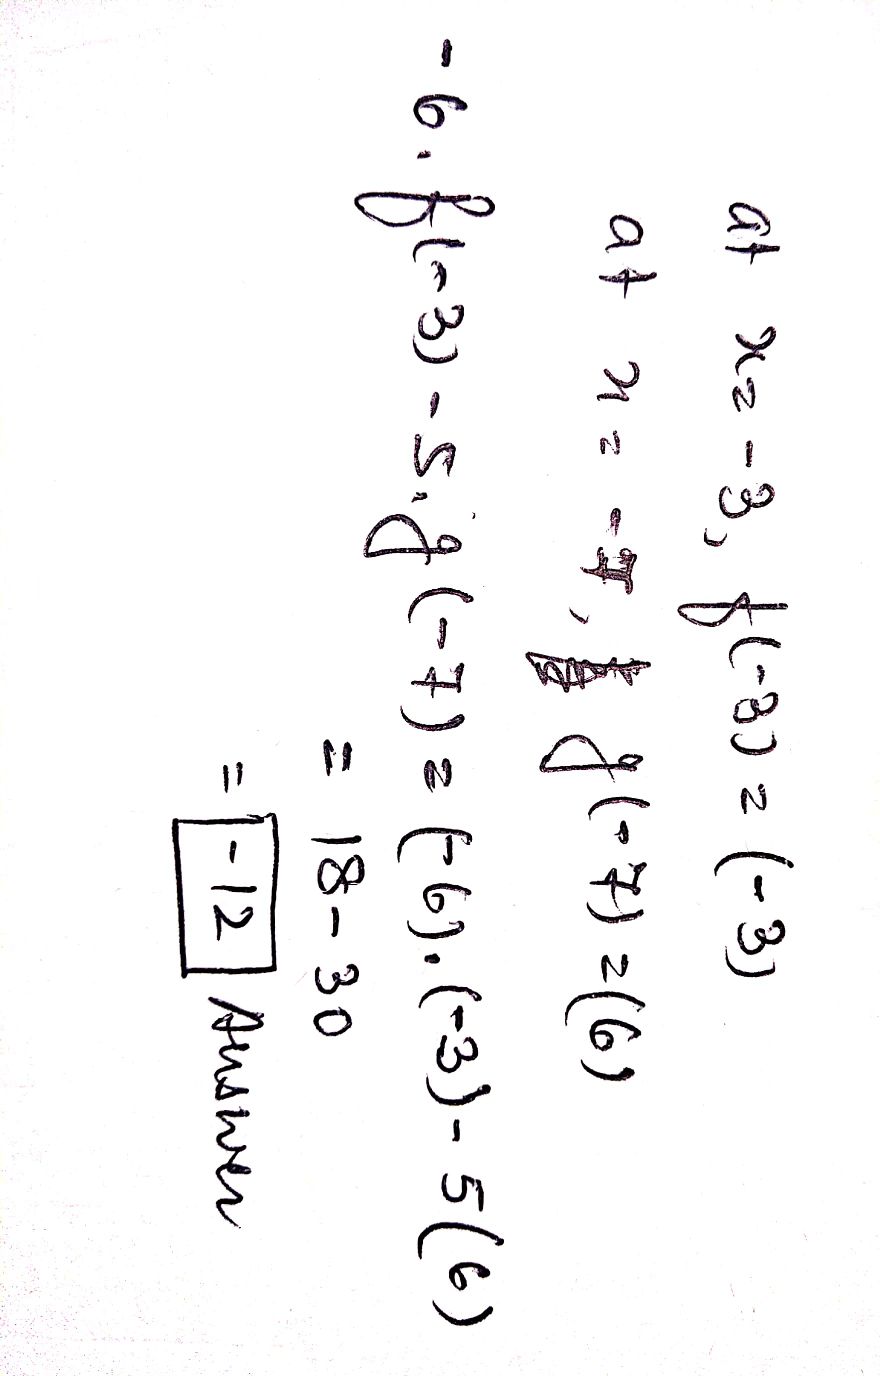 at x = -3, f(-3) = (-3)
at x = -7, g(-7) = (6)
-6. f(-3) - 5. g(-7) = (-6). (-3) - 5(6)
= 18 - 30
= -12 Answer